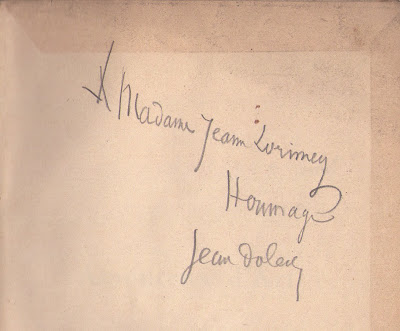 A Madame Jeann Lorimey
Hommage
Jean Dolecq